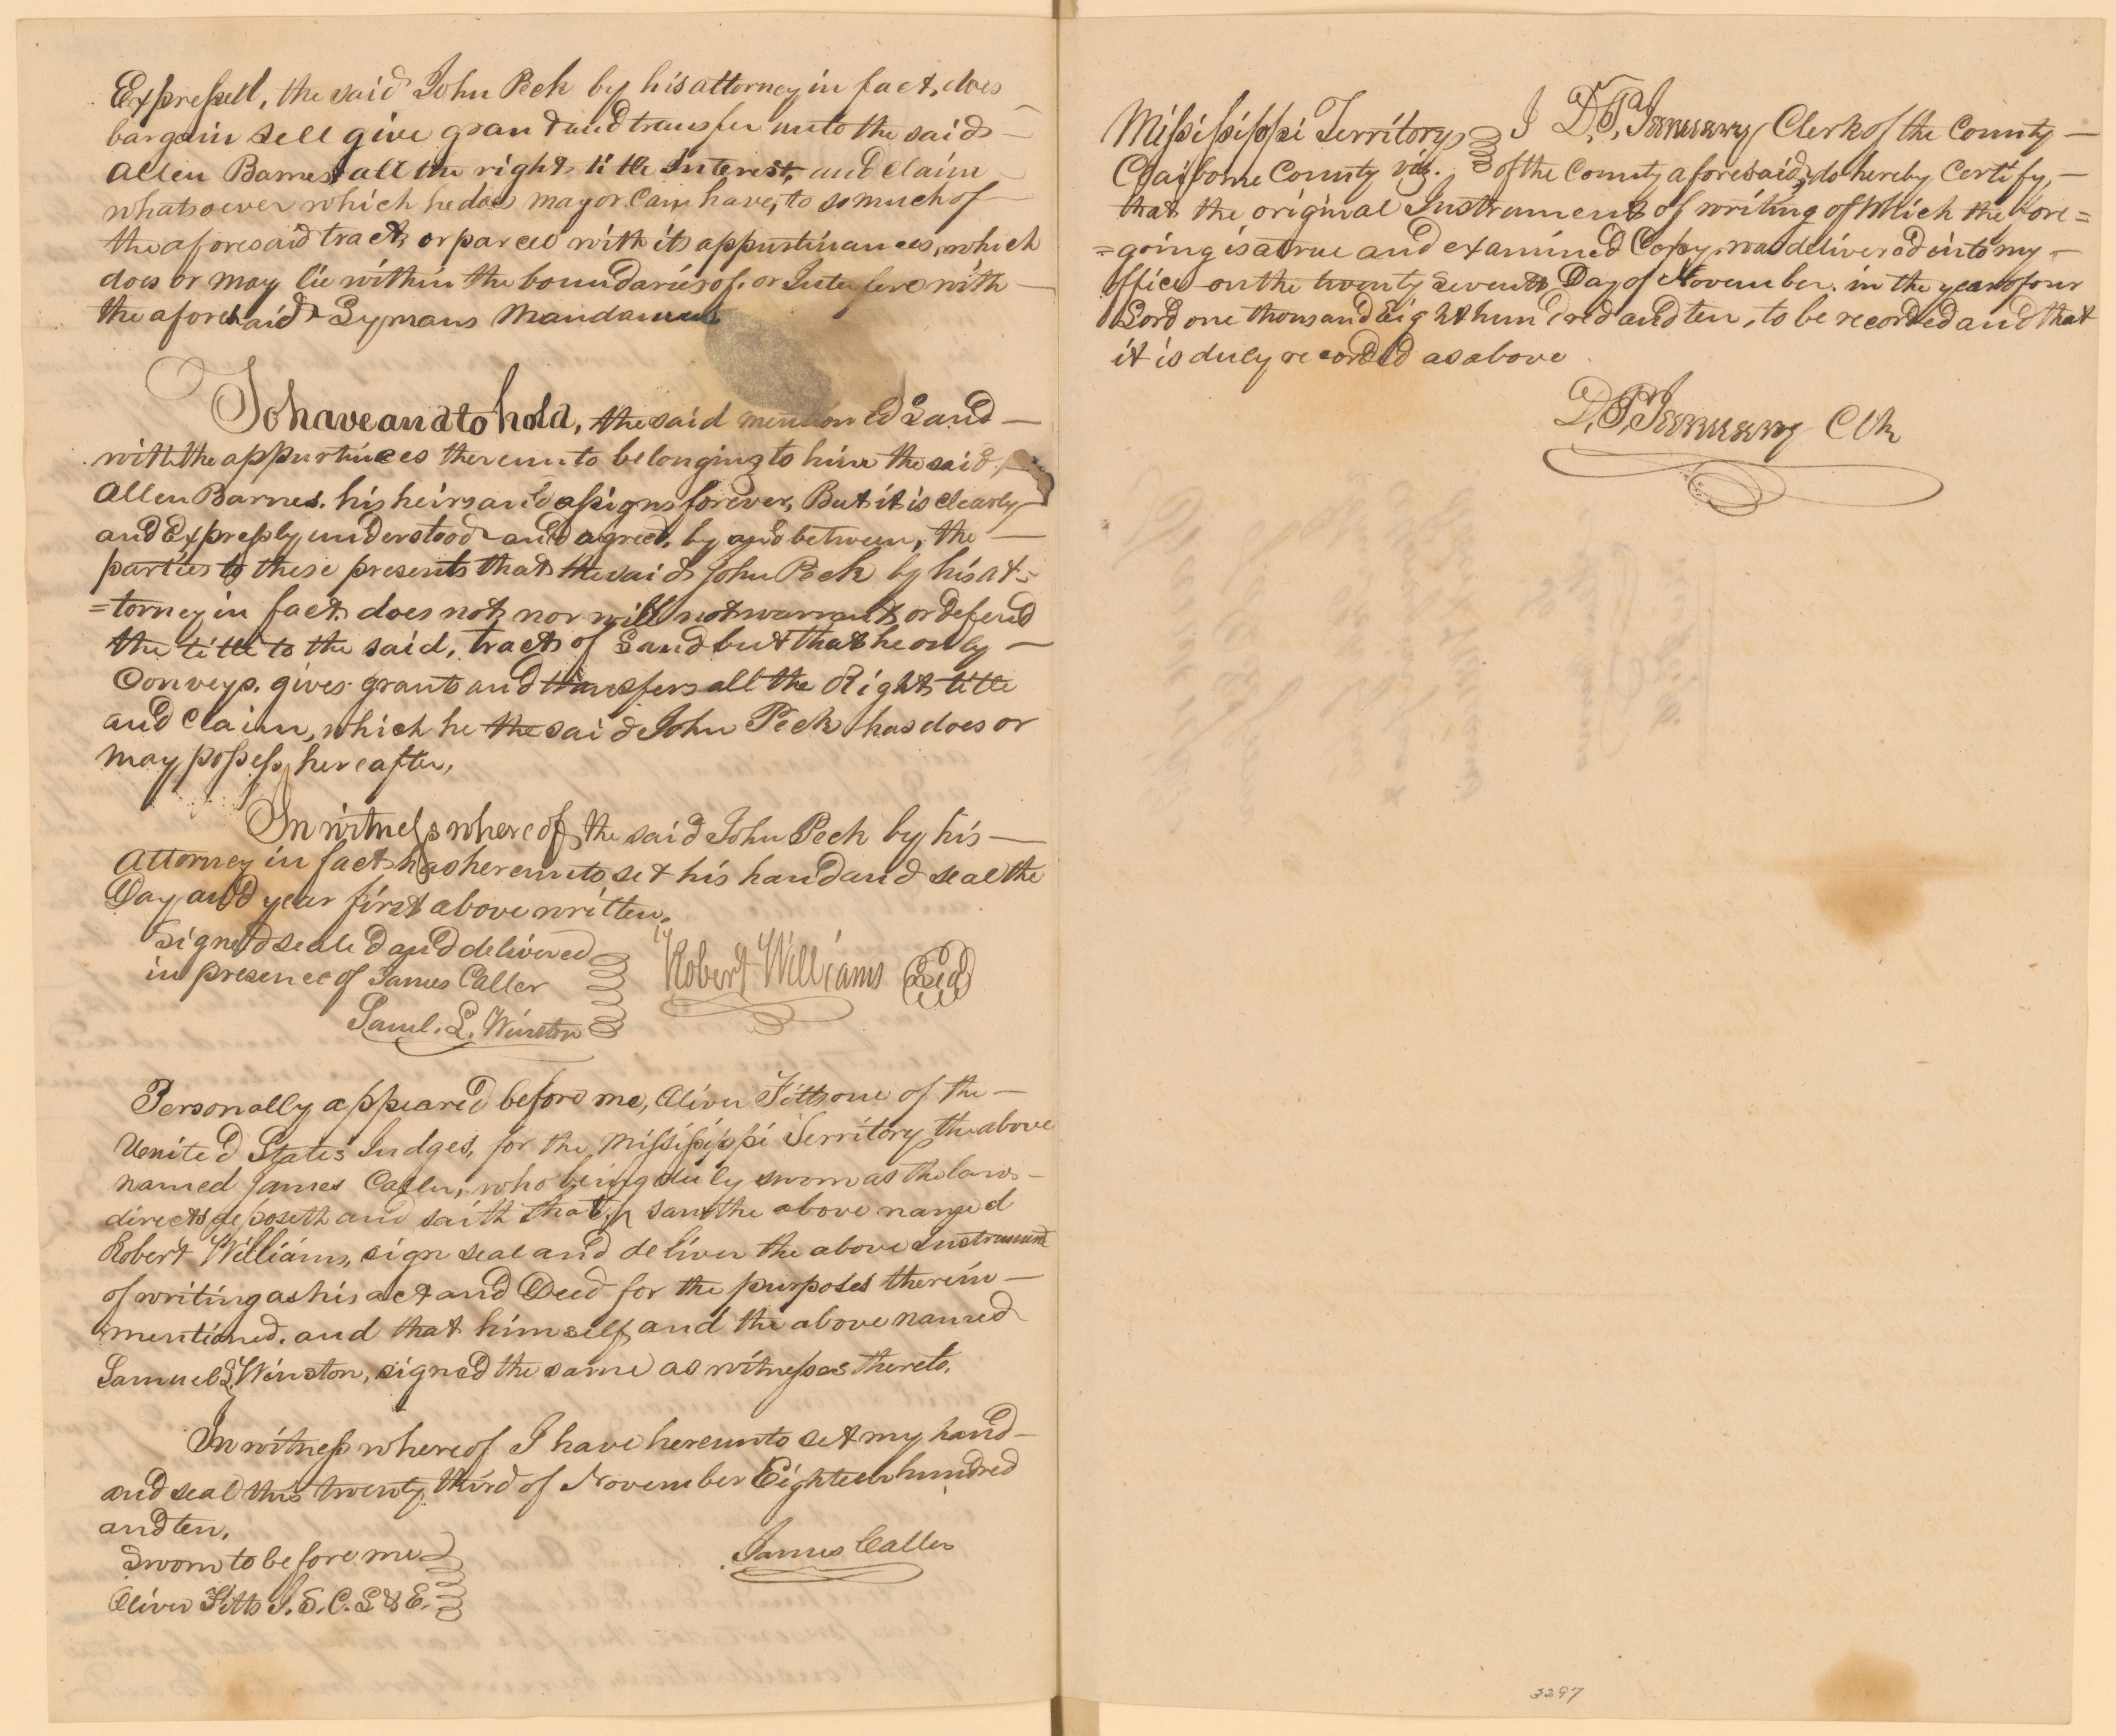 Expressed, the said John Peck by his attorney in fact, does
bargain sell give grant and transfer unto the said
Allen Barnes all the right title Interest, and claim
whatsoever which he does may or Can have, to so much of
the aforesaid tract, or parcel with its appurtinances, which
does or may lie within the boundaries of, or Interfere with
the aforesaid Lymans Mandamus
To have and to hold, the said mentioned Land
with the appurtinces thereunto belonging to him the said
Allen Barnes. his heirs and assigns forever, But it is clearly
and Expressly understood and agreed, by and between, the
parties to these presents that the said John Peck by his at-
=torney in fact does not, nor will not warrant, or defend
the title to the said, tract of Land but that he only
Conveys. gives grants and transfers all the Right title
and Claim, which he the said John Peck has does or
may possess hereafter,
In witness whereof, the said John Peck by his
Attorney in fact has hereunto set his hand and seal the
Day and year first above written,
signed sealed and delivered
in presence of James Caller
Saml. L. Winston
Robert Williams Seal
Personally appeared before me, Oliver Fitts one of the
United States Judges, for the Missisippi Territory the above
named James Caller, who being duly sworn as the law
directs deposeth and saith that he saw the above named
Robert Williams, sign seal and deliver the above Instrument
of writing as his act and Deed for the purposes therein
mentioned. and that himself, and the above named
Samuel L. Winston, signed the same as witnesses thereto.
In witness whereof I have hereunto set my hand
and seal this twenty third of November Eighteen hundred
and ten,
Sworn to before me
James Caller
Oliver Fitts J. S. C. L & E.
Missisippi Territory I D, P, January Clerk of the County
Claiborne County viz. of the County aforesaid, do hereby Certify,
that the original Instrument of writing of which the fore=
=going is a true and examined Copy, was delivered into my
office on the twenty seventh Day of November. in the year of our
Lord one thousand Eight hundred and ten, to be recorded and that
it is duly recorded as above
D, P, January Clk
3297